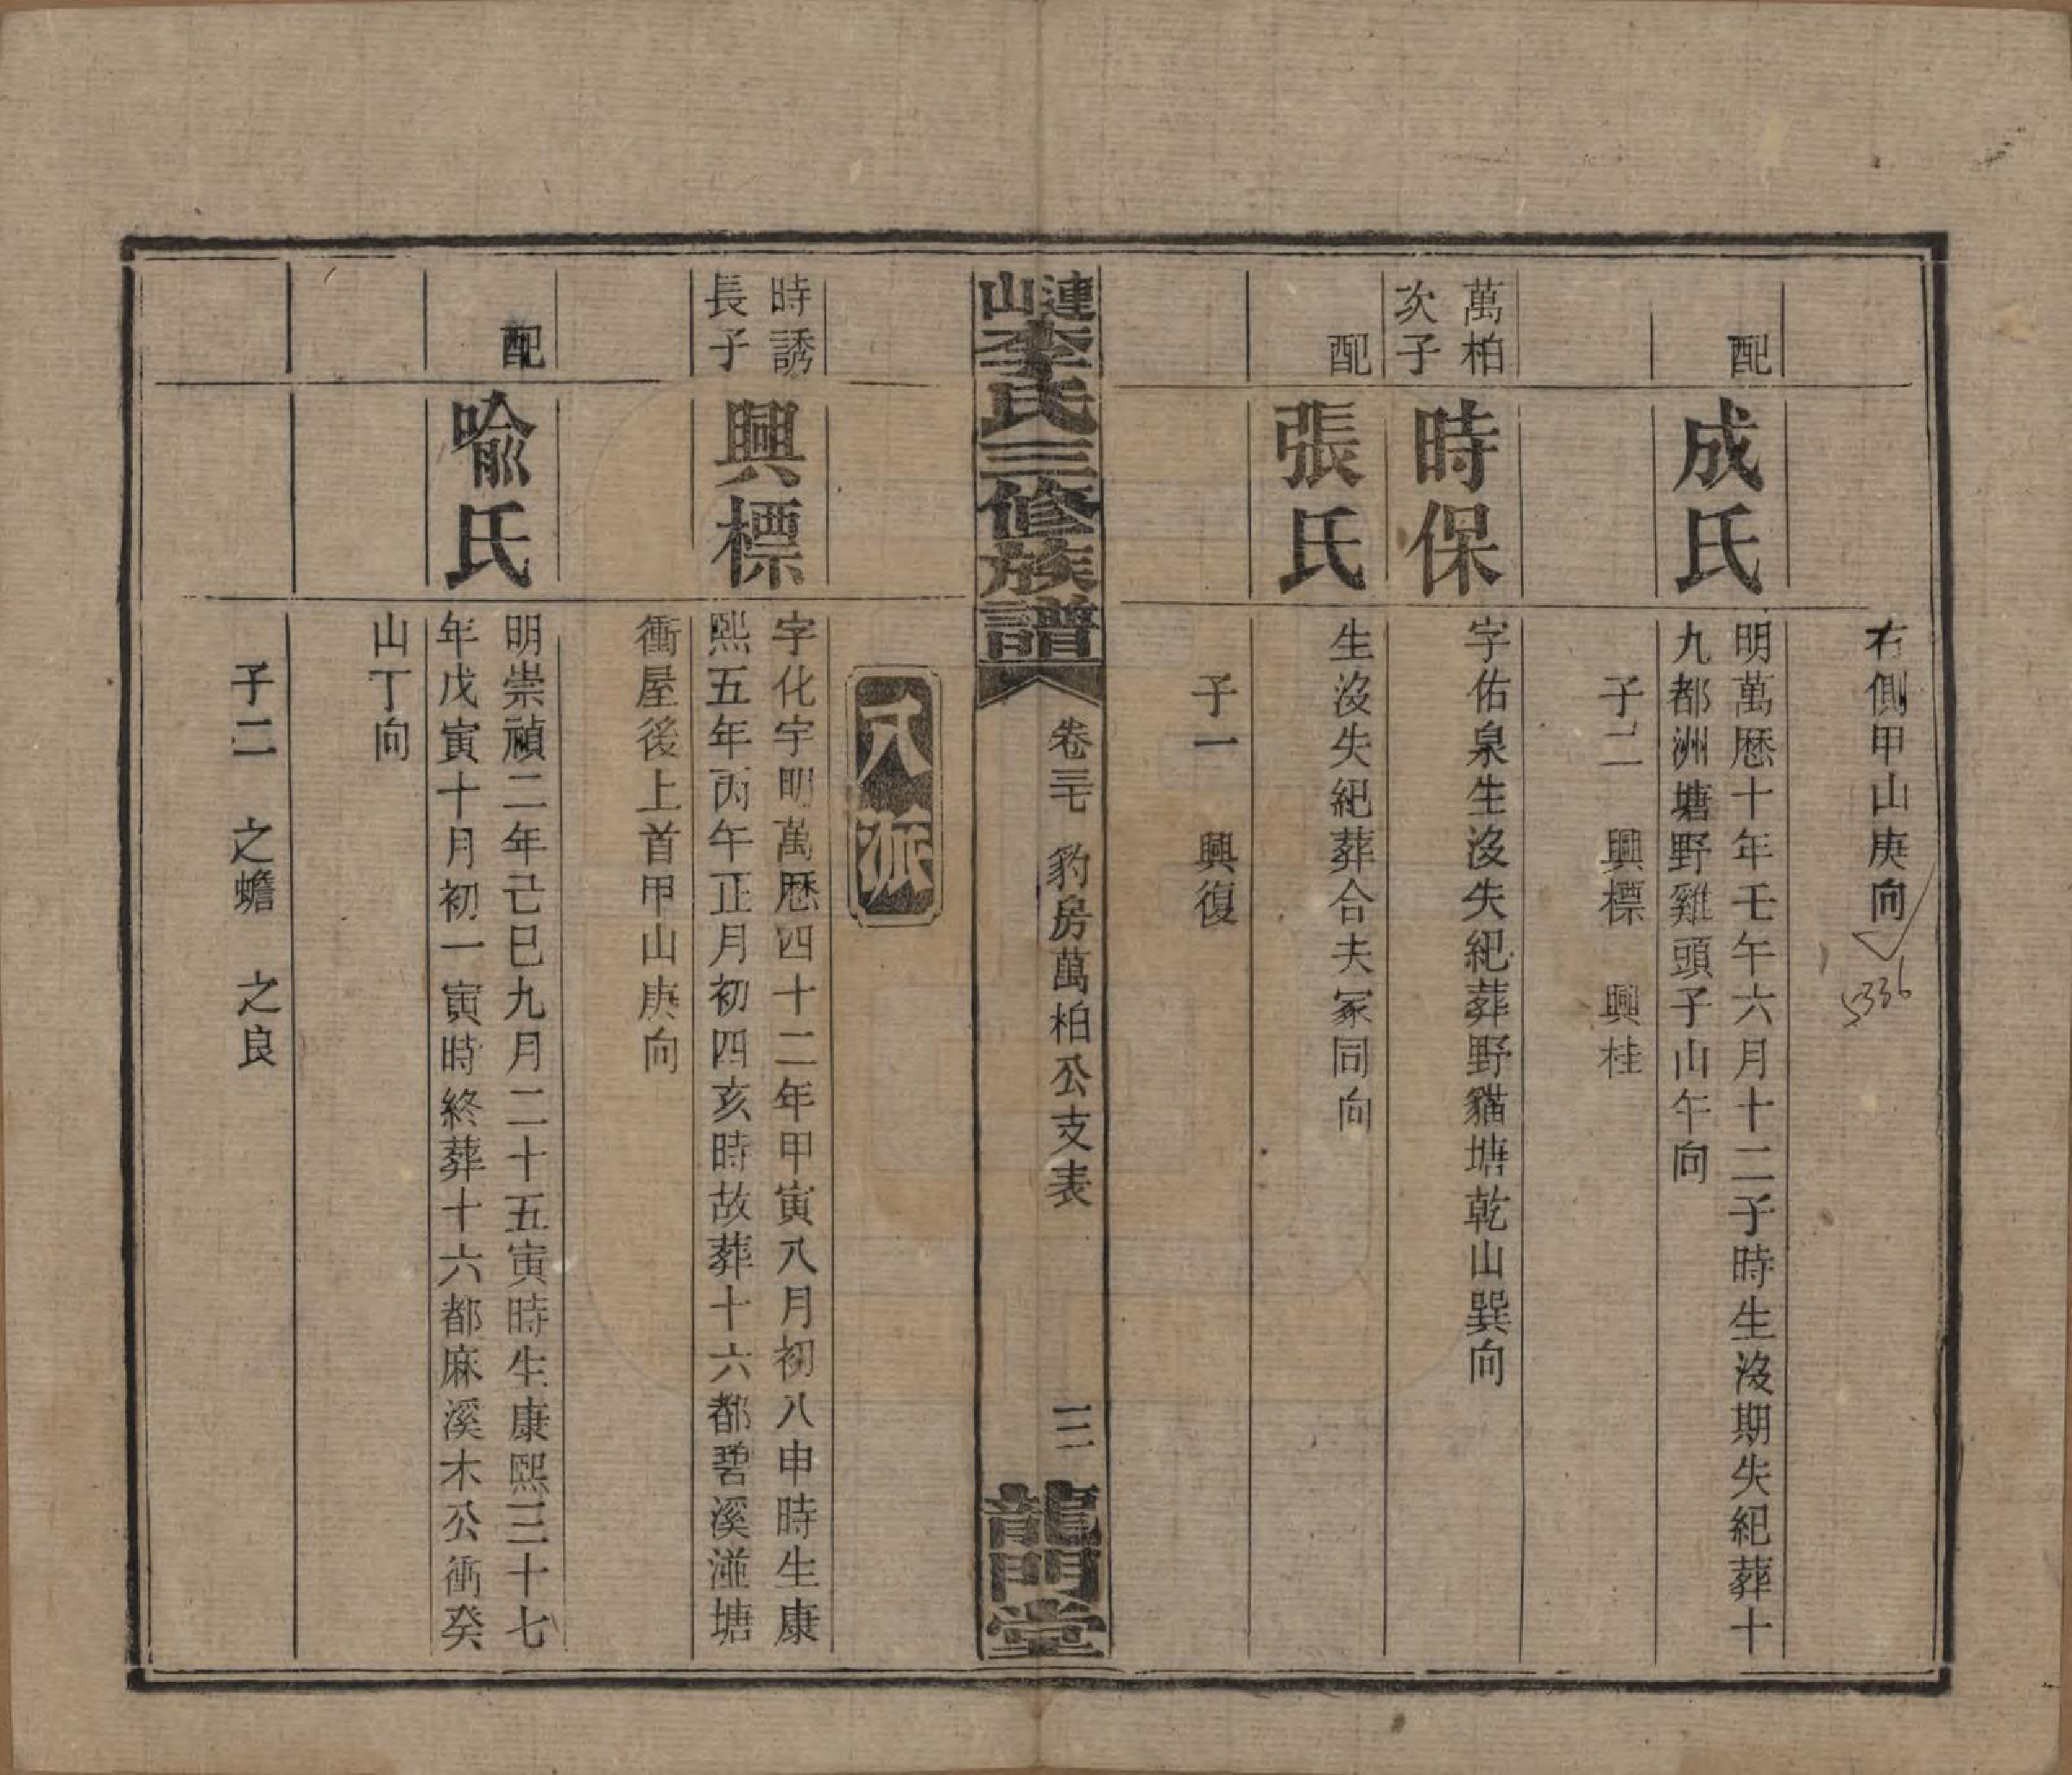 右側甲山庚向
5336
配
成氏
明萬曆十年壬午六月十二子時生沒期失紀葬十
九都洲塘野雞頭子山午向
子二　興標　興桂
萬柏
次子
時保
字佑泉生沒失紀葬野貓塘乾山巽向
配
張氏
生沒失紀葬合夫冢同向
子一　興復
漣山李氏三修族譜
卷三七　豹房萬柏公支表
三
龍門堂
八派
時誘
長子
興標
字化宇明萬曆四十二年甲寅八月初八申時生康
熙五年丙午正月初四亥時故葬十六都碧溪湴塘
衝屋後上首甲山庚向
配
喩氏
明崇禎二年己巳九月二十五寅時生康熙三十七
年戊寅十月初一寅時終葬十六都麻溪木公衝癸
山丁向
子二　之蟾　之良